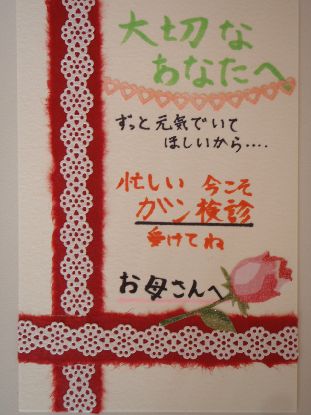 大切な
あなたへ
ずっと元気でいて
ほしいから....
忙しい 今こそ
ガン検診
受けてね
お母さんへ